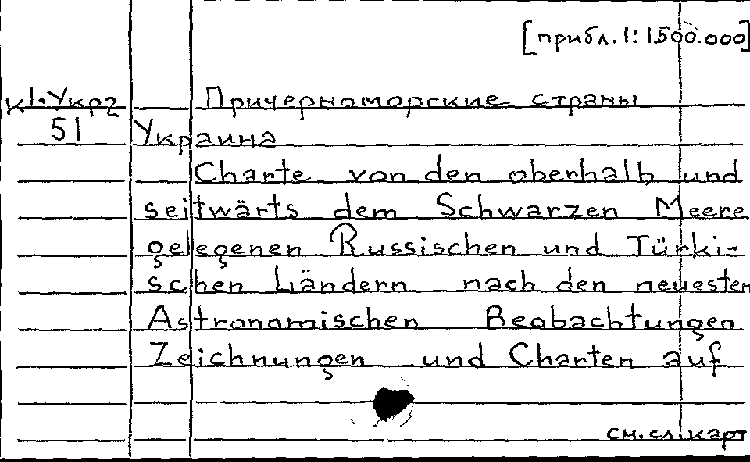 [прибл. 1:1.500.000]
к1.Укр2 Причерноморские страны
51 Украина
Charte von den oberhalb und
seitwärts dem Schwarzen Meere
gelegenen Russischen und Türki-
schen Ländern nach den neuesten
Astronomischen Beobachtungen
Zeichnungen und Charten auf
см. сл. карт